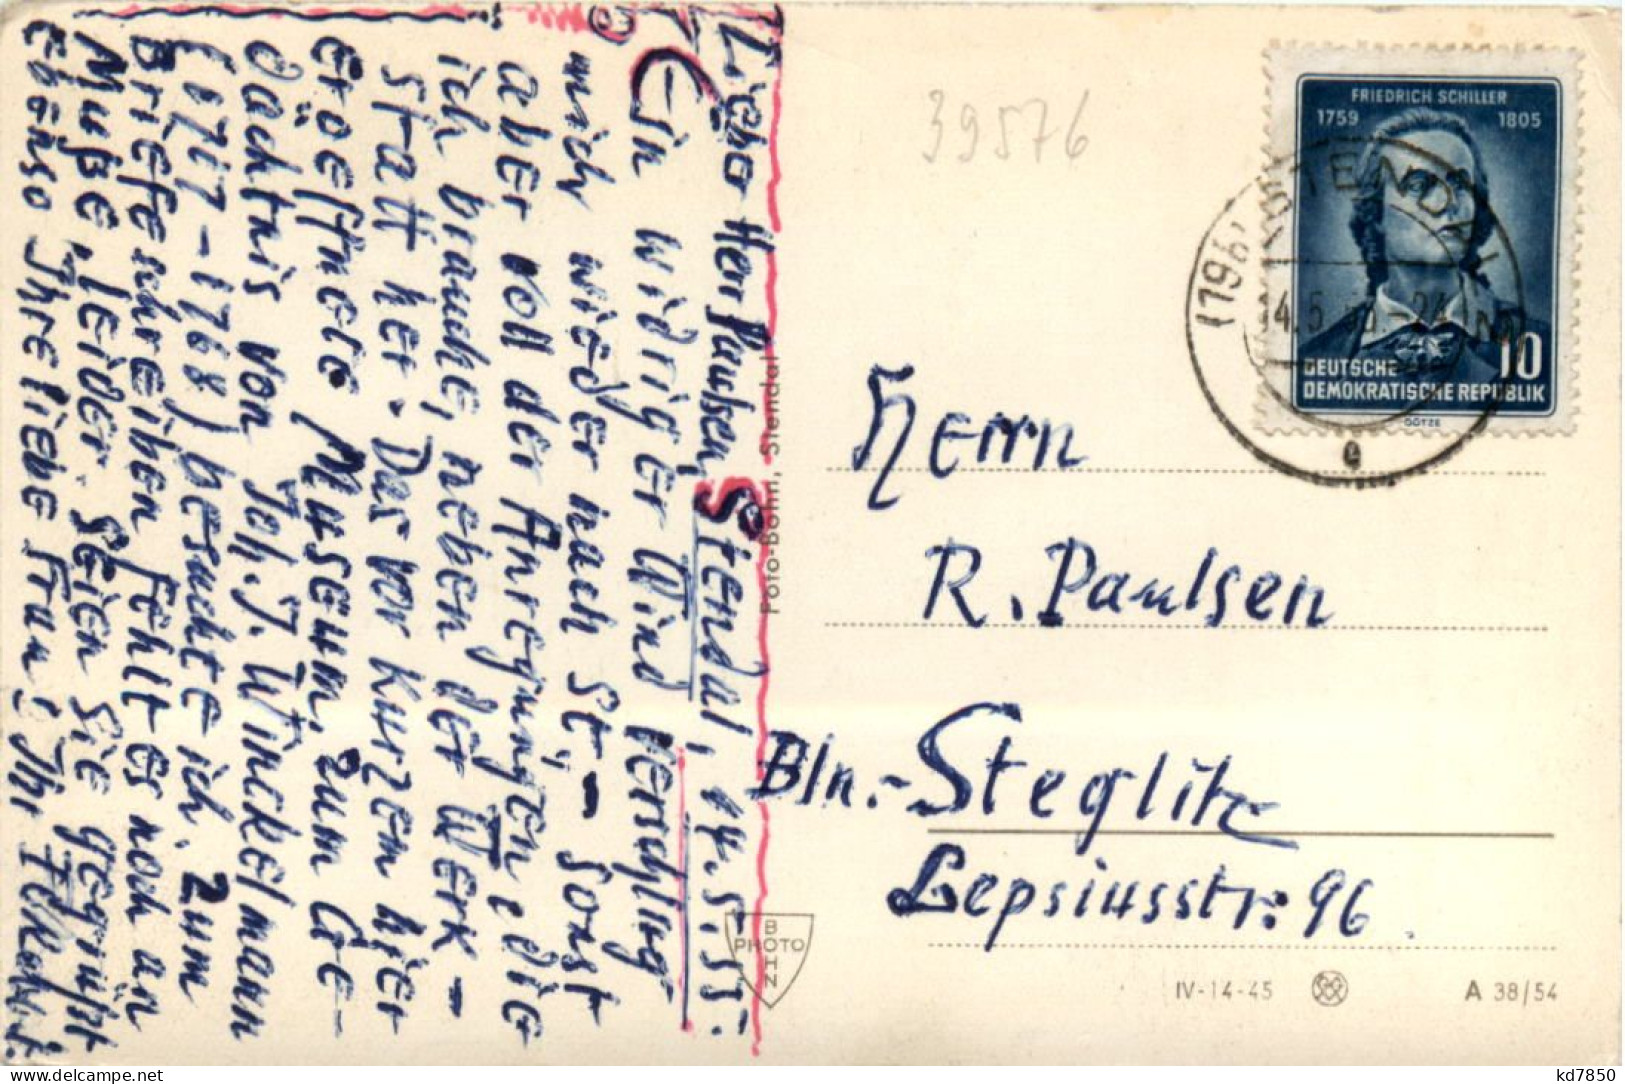 Lieber Herr Paulsen, Stendal, 14.5.55.
Ein widriger Wind verschlug
mich wieder nach St, - sonst
aber voll der Anregungen, die
ich brauche, neben der Werk-
statt her. Das vor kurzem hier
eröffnete Museum, zum Ge-
dächtnis von Joh. J. Winckelmann
(1717-1768) besuchte ich. Zum
Briefeschreiben fehlt es noch an
Muße, leider. Seien Sie gegrüßt
Ebenso Ihre liebe Frau! Ihr
Foto-Bohn, Stendal
B
PHOTO
39576
FRIEDRICH SCHILLER
1759 1805
10
DEUTSCHE
DEMOKRATISCHE REPUBLIK
GÖTZE
STENDAL
e
Herrn
R. Paulsen
Bln.-Steglitz
Lepsiusstr. 96
IV-14-45 A 38/54
kd7850